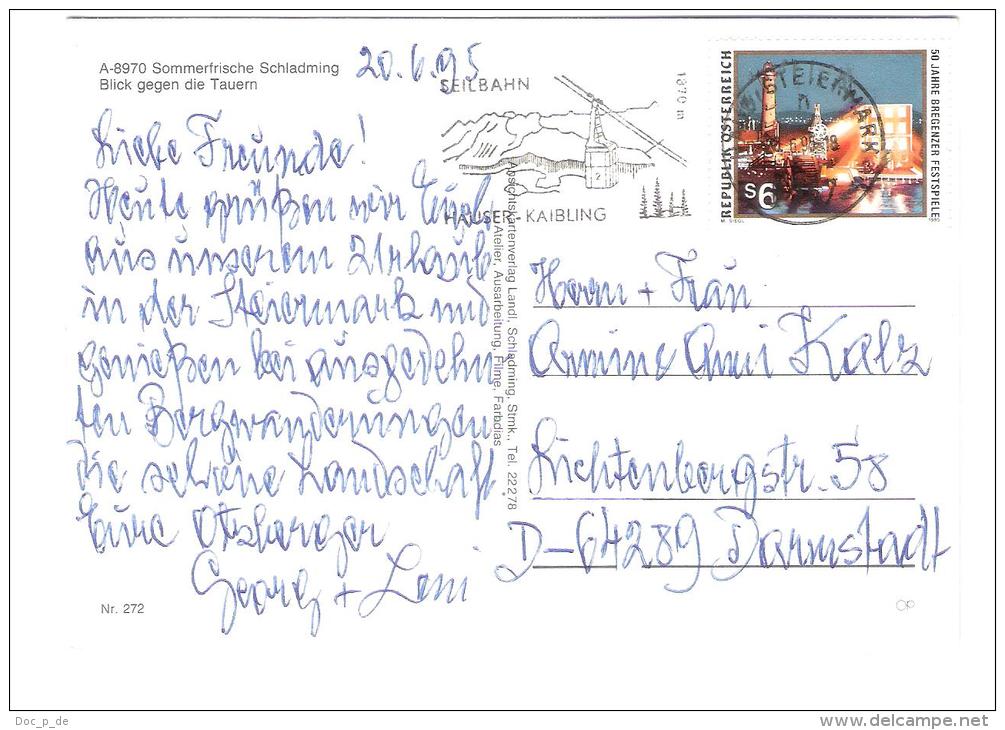 A-8970 Sommerfrische Schladming
Blick gegen die Tauern
20.6.95
SEILBAHN
1870 m
2
HAUSER-KAIBLING
Liebe Freunde!
Heute grüßen wir Euch
aus unserem Urlaub
in der Steiermark und
genießen bei ausgedehn-
ten Bergwanderungen
die schöne Landschaft
Eure Otzberger
Georg + Leni
Nr. 272
Ansichtskartenverlag Landl, Schladming, Stmk., Tel. 22278
Atelier, Ausarbeitung, Filme, Farbdias
REPUBLIK ÖSTERREICH
S6
50 JAHRE BREGENZER FESTSPIELE
1995
STEIERMARK
Herrn + Frau
Armine Anni Kalz
Lichtenbergstr. 58
D-64289 Darmstadt
Doc_p_de
www.delcampe.net